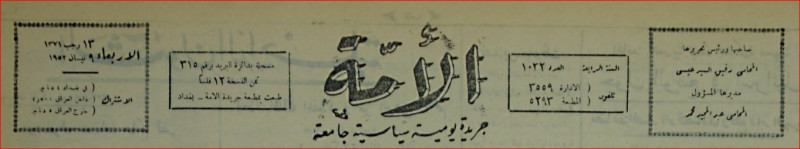 صاحبها ورئيس تحريرها
المحامي رفيق السيد عيسى
مديرها المسؤول
المحامي عبد الحميد محمد
السنة الرابعة العدد ١٠٢٢
تلفون
الادارة ٣٥٥٩
المطبعة ٥٢٩٣
الأمة
جريدة يومية سياسية جامعة
مسجلة بدائرة البريد برقم ٣١٥
ثمن النسخة ١٢ فلساً
طبعت بمطبعة جريدة الامة - بغداد
١٣ رجب ١٣٧١
الاربعاء ٩ نيسان ١٩٥٢
الاشتراك
في بغداد
داخل العراق
خارج العراق